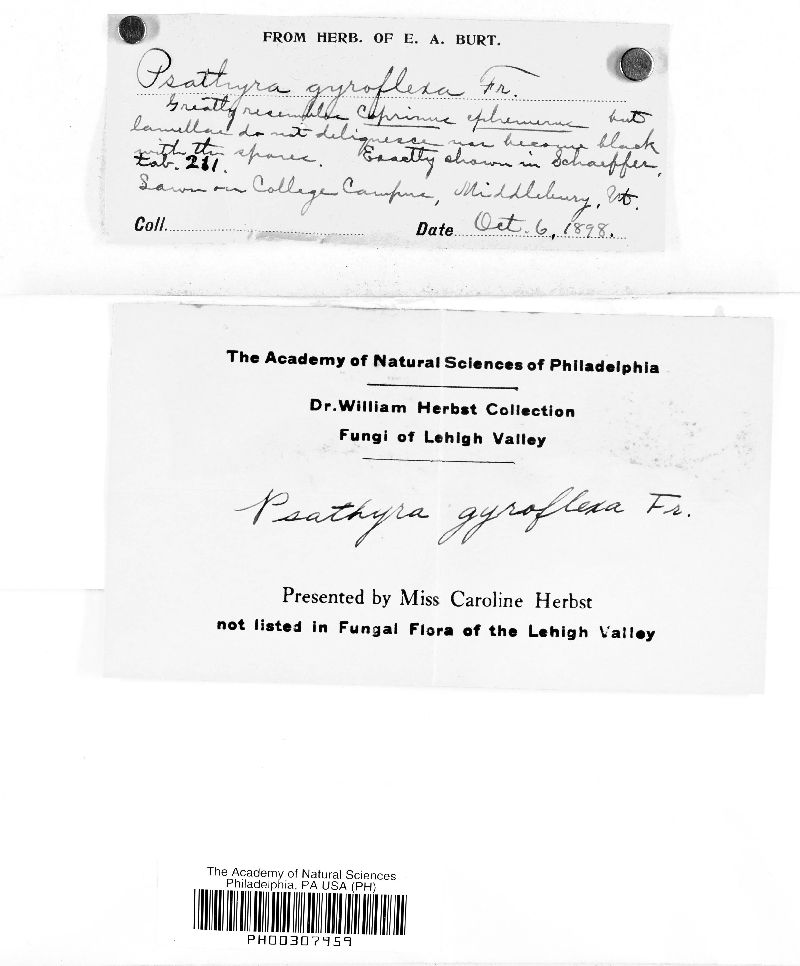 FROM HERB. OF E. A. BURT.
Psathyra gyroflexa Fr.
Greatly resembles Coprinus ephemerus but
lamellae do not deliquesce nor become black
with the spores. Exactly shown in Schaeffer,
tab. 211.
Lawn on College Campus, Middlebury, Vt.
Coll. Date Oct. 6, 1898.
The Academy of Natural Sciences of Philadelphia
Dr. William Herbst Collection
Fungi of Lehigh Valley
Psathyra gyroflexa Fr.
Presented by Miss Caroline Herbst
not listed in Fungal Flora of the Lehigh Valley
The Academy of Natural Sciences
Philadelphia, PA USA (PH)
PH00307959